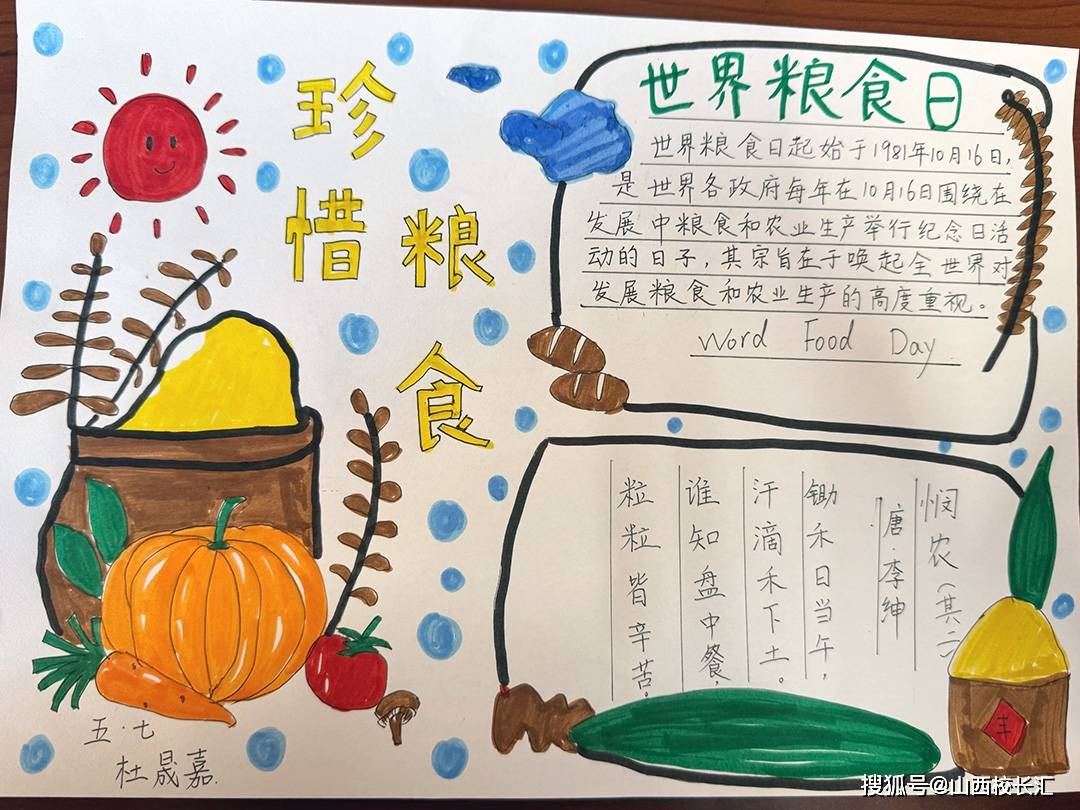 珍惜粮食
世界粮食日
世界粮食日起始于1981年10月16日,
是世界各政府每年在10月16日围绕在
发展中粮食和农业生产举行纪念日活
动的日子，其宗旨在于唤起全世界对
发展粮食和农业生产的高度重视。
Word Food Day
悯农(其二)
唐·李绅
锄禾日当午，
汗滴禾下土。
谁知盘中餐，
粒粒皆辛苦。
丰
五·七
杜晟嘉
搜狐号@山西校长汇